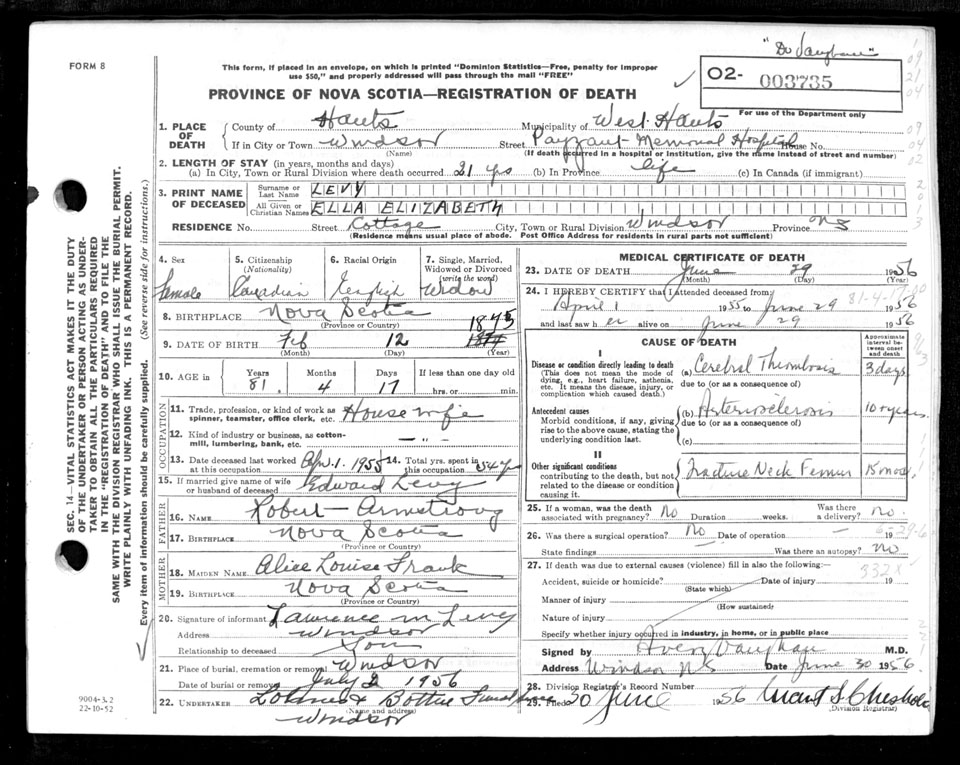 "Dr Vaughan"
FORM 8
This form, if placed in an envelope, on which is printed "Dominion Statistics—Free, penalty for improper
use $50," and properly addressed will pass through the mail "FREE"
O2- 003735
For use of the Department only
PROVINCE OF NOVA SCOTIA—REGISTRATION OF DEATH
SEC. 14—VITAL STATISTICS ACT MAKES IT THE DUTY
OF THE UNDERTAKER OR PERSON ACTING AS UNDER-
TAKER TO OBTAIN ALL THE PARTICULARS REQUIRED
IN THE "REGISTRATION OF DEATH" AND TO FILE THE
SAME WITH THE DIVISION REGISTRAR WHO SHALL ISSUE THE BURIAL PERMIT.
WRITE PLAINLY WITH UNFADING INK. THIS IS A PERMANENT RECORD.
Every item of information should be carefully supplied. (See reverse side for instructions.)
1. PLACE OF DEATH County of Hants Municipality of West Hants
If in City or Town Windsor Street Payzant Memorial Hospital House No.
(Name) (If death occurred in a hospital or institution, give the name instead of street and number)
2. LENGTH OF STAY (in years, months and days)
(a) In City, Town or Rural Division where death occurred 21 yrs (b) In Province life (c) In Canada (if immigrant)
3. PRINT NAME OF DECEASED Surname or Last Name LEVY
All Given or Christian Names ELLA ELIZABETH
RESIDENCE No. Street Cottage City, Town or Rural Division Windsor Province NS
(Residence means usual place of abode. Post Office Address for residents in rural parts not sufficient)
4. Sex Female
5. Citizenship (Nationality) Canadian
6. Racial Origin English
7. Single, Married, Widowed or Divorced (write the word) Widow
8. BIRTHPLACE Nova Scotia
(Province or Country)
9. DATE OF BIRTH Feb 12 1875 1874
(Month) (Day) (Year)
10. AGE in Years 81 Months 4 Days 17 If less than one day
hrs. or min.
OCCUPATION
11. Trade, profession, or kind of work as spinner, teamster, office clerk, etc. House wife
12. Kind of industry or business, as cotton-mill, lumbering, bank, etc. — " — "
13. Date deceased last worked at this occupation Apr. 1. 1955 14. Total yrs. spent in this occupation 54 yrs
15. If married give name of wife or husband of deceased Edward Levy
FATHER
16. NAME Robert Armstrong
17. BIRTHPLACE Nova Scotia
(Province or Country)
MOTHER
18. MAIDEN NAME Alice Louise Frank
19. BIRTHPLACE Nova Scotia
(Province or Country)
20. Signature of informant Lawrence M Levy
Address Windsor
Relationship to deceased Son
21. Place of burial, cremation or removal Windsor
Date of burial or removal July 2 1956
22. UNDERTAKER
(Name and address)
Windsor
9004-3.2
22-10-52
MEDICAL CERTIFICATE OF DEATH
23. DATE OF DEATH June 29 1956
(Month) (Day) (Year)
24. I HEREBY CERTIFY that I attended deceased from
April 1 1955 to June 29 1956
and last saw her alive on June 29 1956
CAUSE OF DEATH
Approximate interval between onset and death
I
Disease or condition directly leading to death
(This does not mean the mode of dying, e.g., heart failure, asthenia, etc. It means the disease, injury, or complication which caused death.)
(a) Cerebral Thrombosis 3 days
due to (or as a consequence of)
Antecedent causes
Morbid conditions, if any, giving rise to the above cause, stating the underlying condition last.
(b) Arteriosclerosis 10+ years
due to (or as a consequence of)
(c)
II
Other significant conditions
contributing to the death, but not related to the disease or condition causing it.
Fracture Neck Femur 15 mos
25. If a woman, was the death associated with pregnancy? No Duration weeks. Was there a delivery? no.
26. Was there a surgical operation? No Date of operation 19
State findings Was there an autopsy? No
27. If death was due to external causes (violence) fill in also the following:— 332X
Accident, suicide or homicide? Date of injury 19
(State which)
Manner of injury
(How sustained)
Nature of injury
Specify whether injury occurred in industry, in home, or in public place
Signed by Avery Vaughan M.D.
Address Windsor NS Date June 30 1956
28. Division Registrar's Record Number
29. Filed 30 June 1956
(Division Registrar)